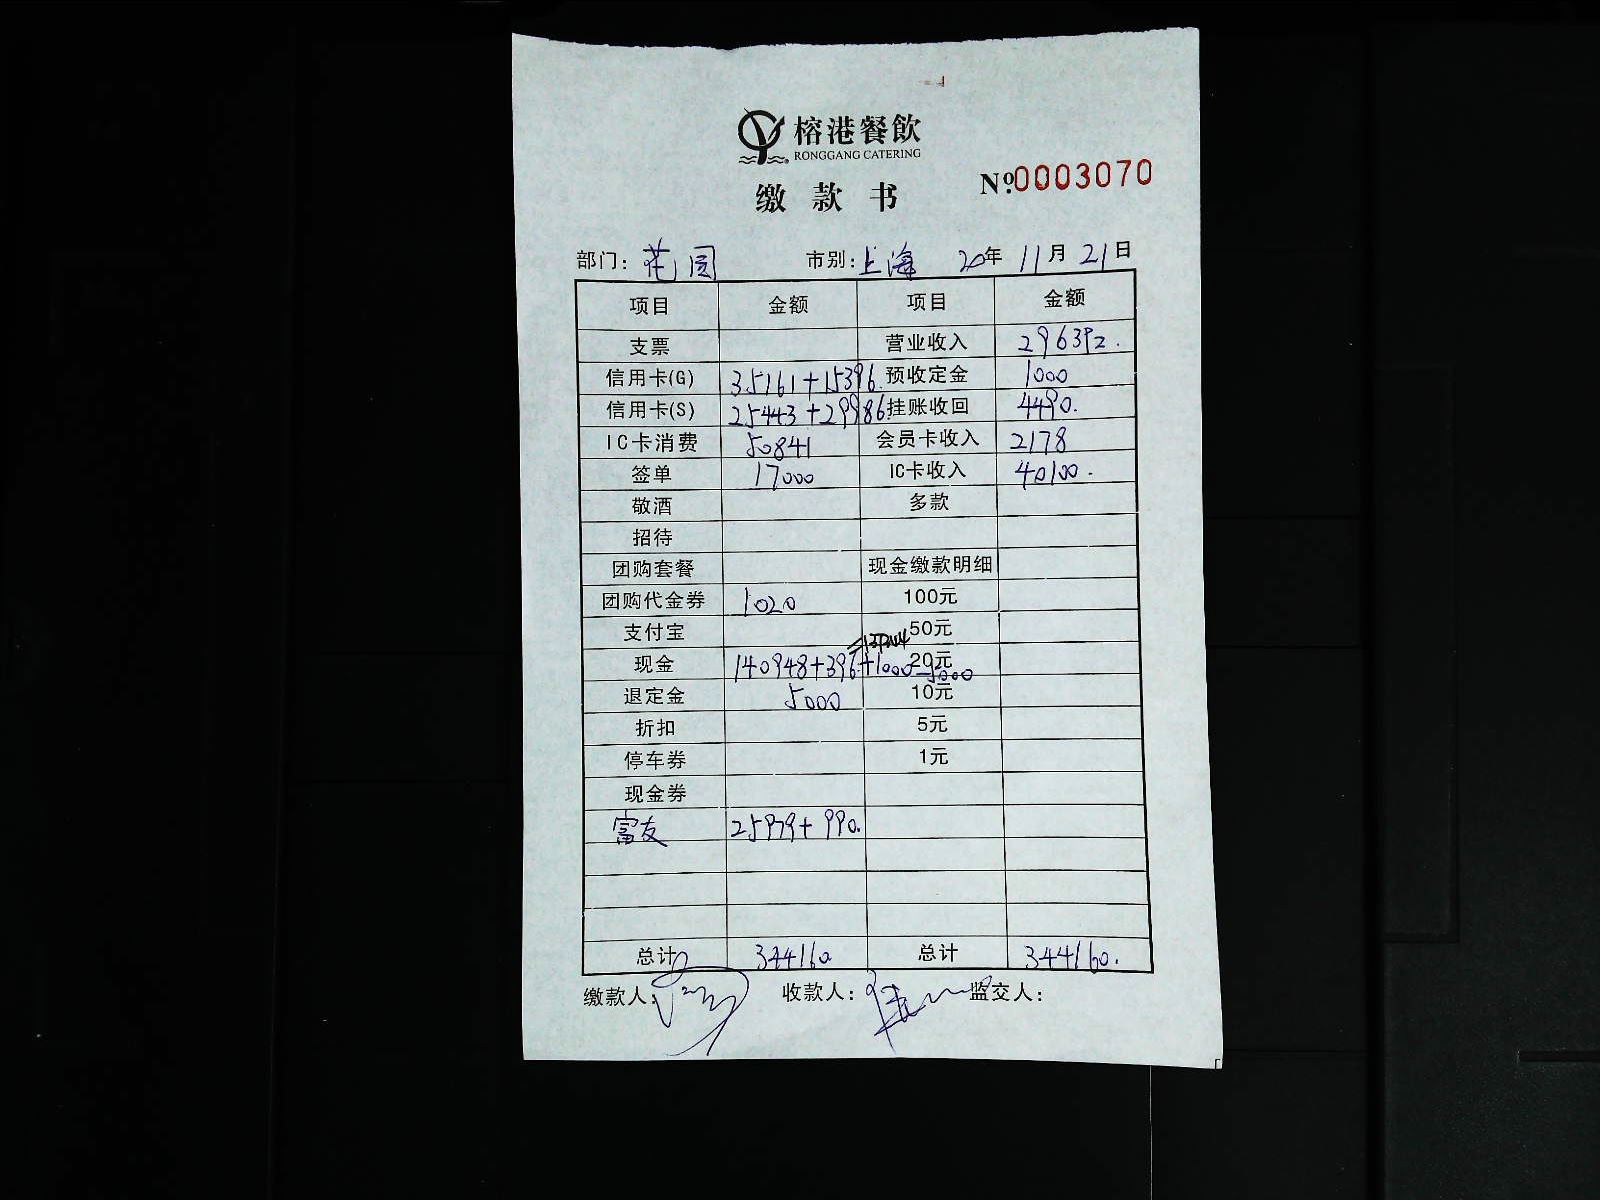 榕港餐飲
RONGGANG CATERING
缴款书
№:0003070
部门: 花园 市别: 上海 20年 11月 21日
项目 金额 项目 金额
支票 营业收入 296392.
信用卡(G) 35161+15396. 预收定金 1000
信用卡(S) 25443+29986. 挂账收回 4490.
IC卡消费 50841 会员卡收入 2178
签单 17000 IC卡收入 40100.
敬酒 多款
招待
团购套餐 现金缴款明细
团购代金券 1020 100元
支付宝 50元
=137344
现金 140948+396+1000-5000 20元
退定金 5000 10元
折扣 5元
停车券 1元
现金券
富友 25979+990.
总计 344160 总计 344160.
缴款人: 收款人: 监交人: